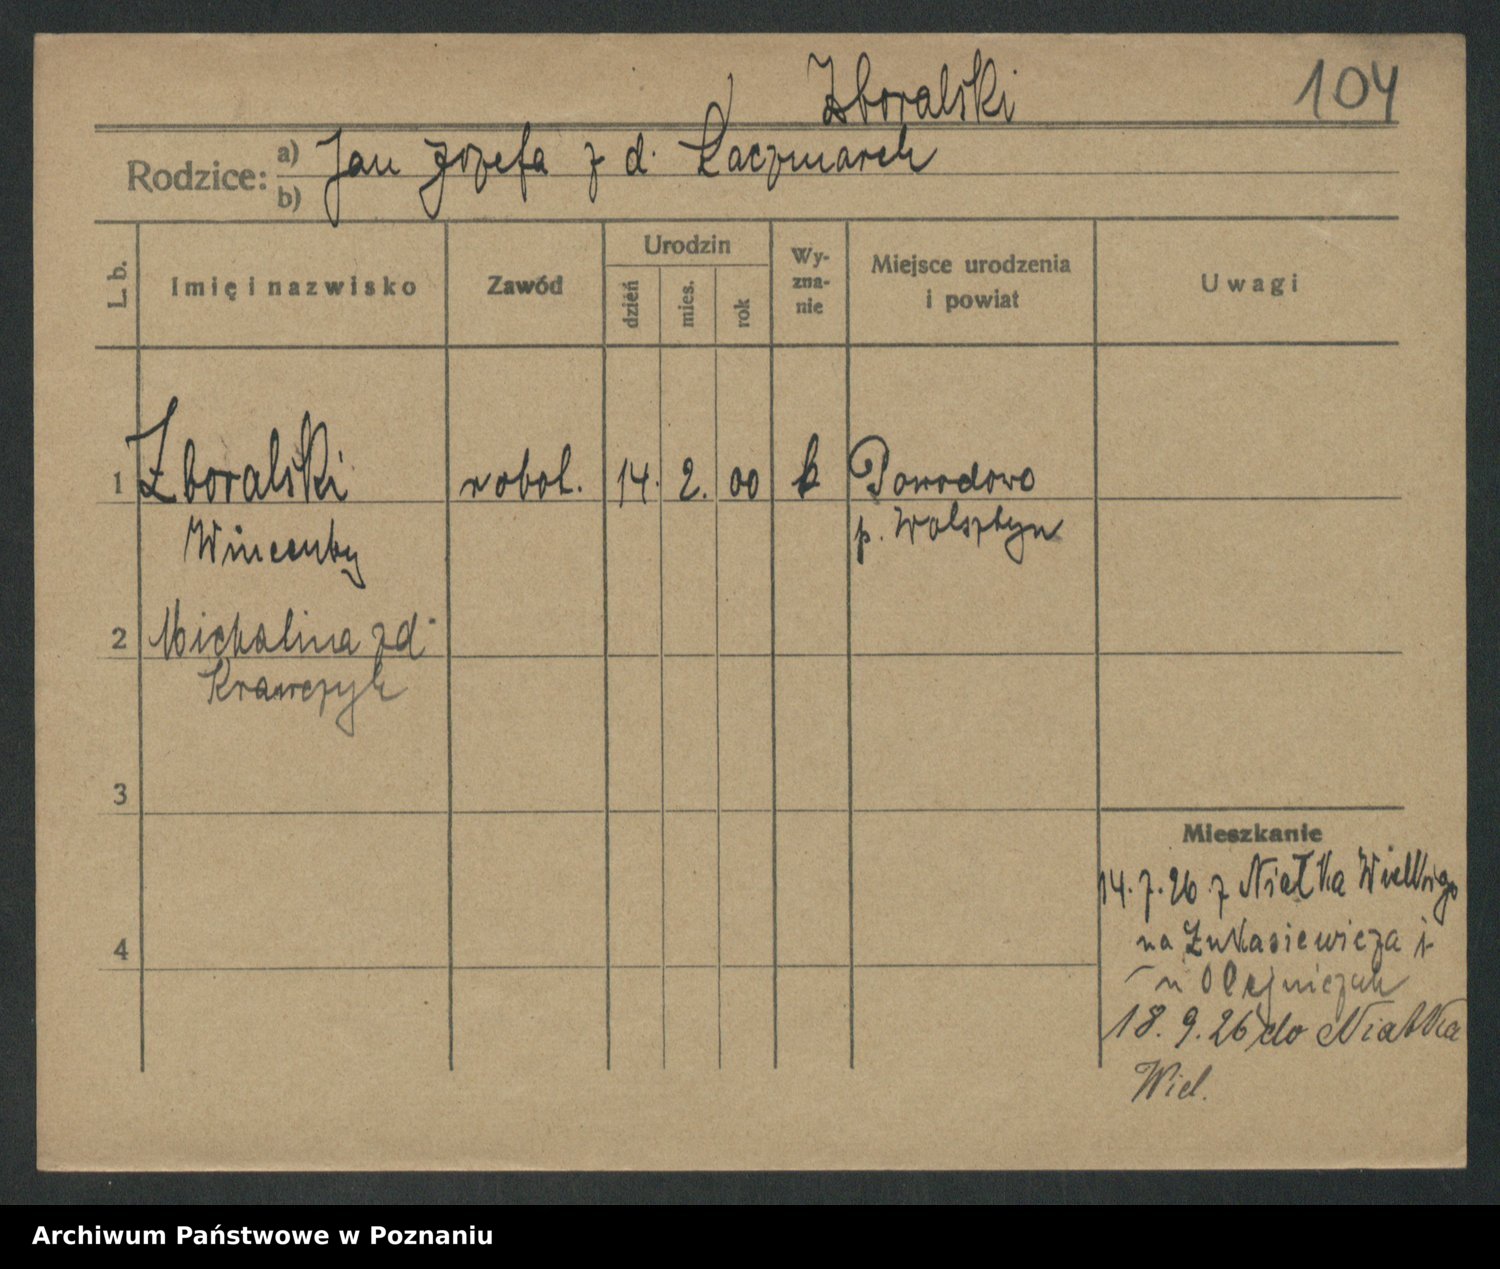 Zboralski
104
Rodzice: a) b) Jan Jozefa z d. Kaczmarek
L. b.
Imię i nazwisko
Zawód
Urodzin
dzień
mies.
rok
Wy-
zna-
nie
Miejsce urodzenia
i powiat
Uwagi
1 Zboralski robot. 14. 2. 00 k Powodowo
Wincenty p. Wolsztyn
2 Michalina zd.
Krawczyk
3
Mieszkanie
14.7.26 z Niałka Wielkiego
na Łukasiewicza
4
u Olejniczak
18.9.26 do Niałka
Wiel.
Archiwum Państwowe w Poznaniu